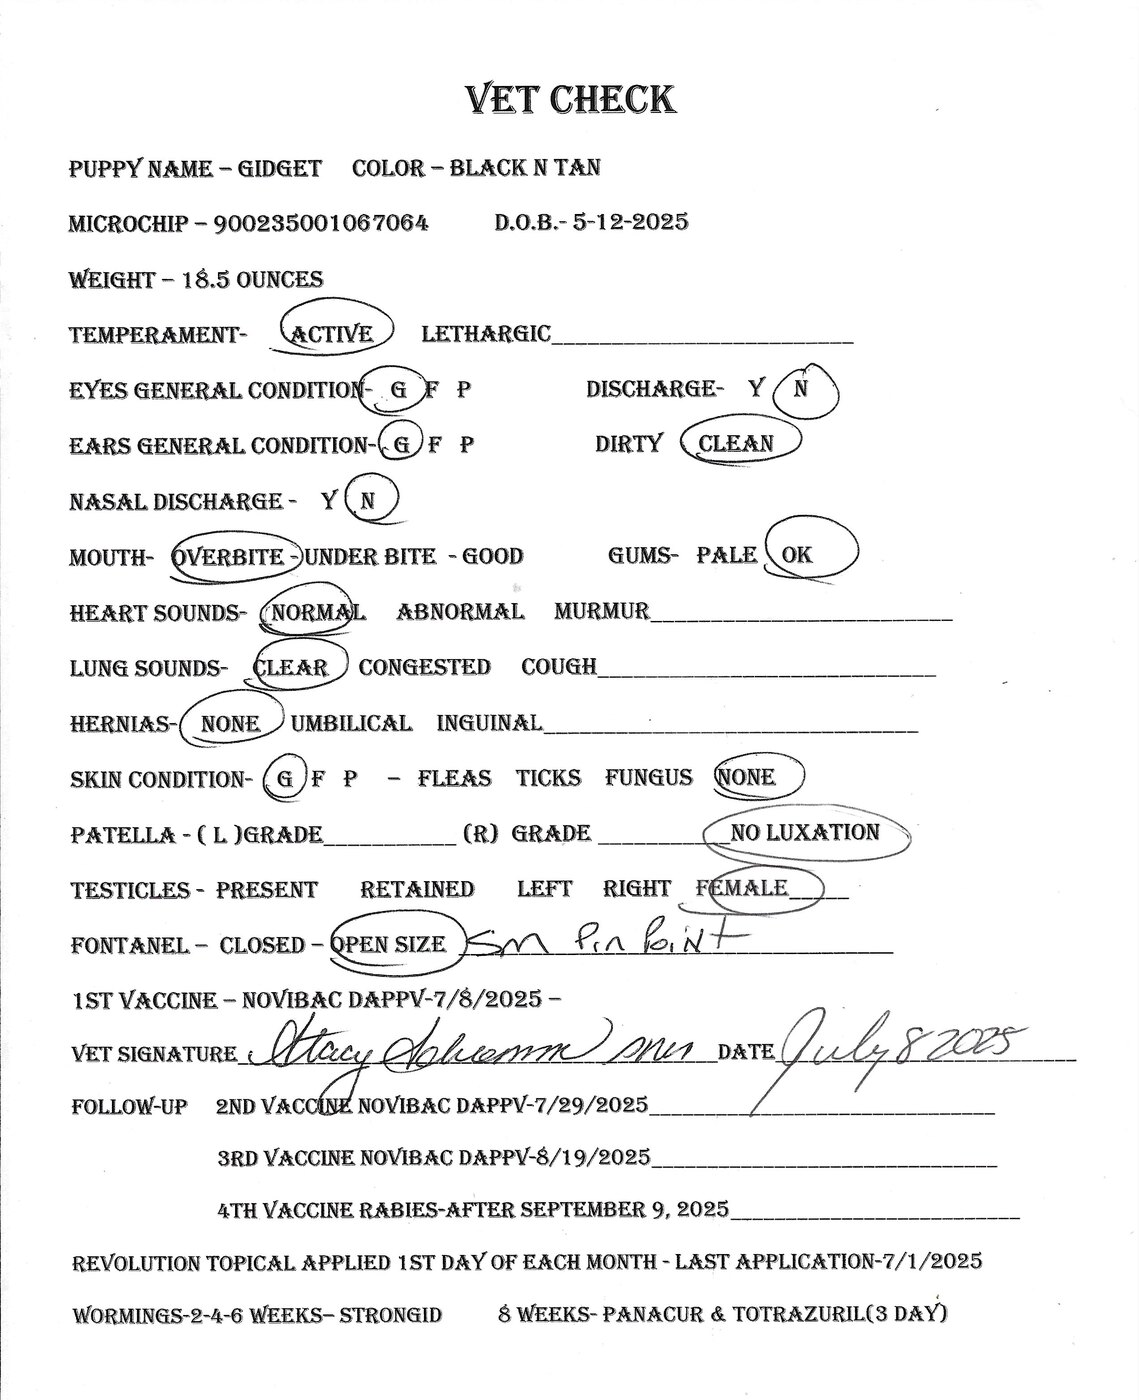 VET CHECK
PUPPY NAME – GIDGET COLOR – BLACK N TAN
MICROCHIP – 900235001067064 D.O.B.- 5-12-2025
WEIGHT – 18.5 OUNCES
TEMPERAMENT- ACTIVE LETHARGIC_________________________
EYES GENERAL CONDITION- G F P DISCHARGE- Y N
EARS GENERAL CONDITION- G F P DIRTY CLEAN
NASAL DISCHARGE - Y N
MOUTH- OVERBITE -UNDER BITE - GOOD GUMS- PALE OK
HEART SOUNDS- NORMAL ABNORMAL MURMUR_________________________
LUNG SOUNDS- CLEAR CONGESTED COUGH____________________________
HERNIAS- NONE UMBILICAL INGUINAL_______________________________
SKIN CONDITION- G F P – FLEAS TICKS FUNGUS NONE
PATELLA - ( L )GRADE___________ (R) GRADE ___________NO LUXATION
TESTICLES - PRESENT RETAINED LEFT RIGHT FEMALE_____
FONTANEL – CLOSED – OPEN SIZE Sm Pin Point
1ST VACCINE – NOVIBAC DAPPV-7/8/2025 –
VET SIGNATURE Stacy DATE July 8 2025
FOLLOW-UP 2ND VACCINE NOVIBAC DAPPV-7/29/2025_____________________________
3RD VACCINE NOVIBAC DAPPV-8/19/2025_____________________________
4TH VACCINE RABIES-AFTER SEPTEMBER 9, 2025________________________
REVOLUTION TOPICAL APPLIED 1ST DAY OF EACH MONTH - LAST APPLICATION-7/1/2025
WORMINGS-2-4-6 WEEKS– STRONGID 8 WEEKS- PANACUR & TOTRAZURIL(3 DAY)